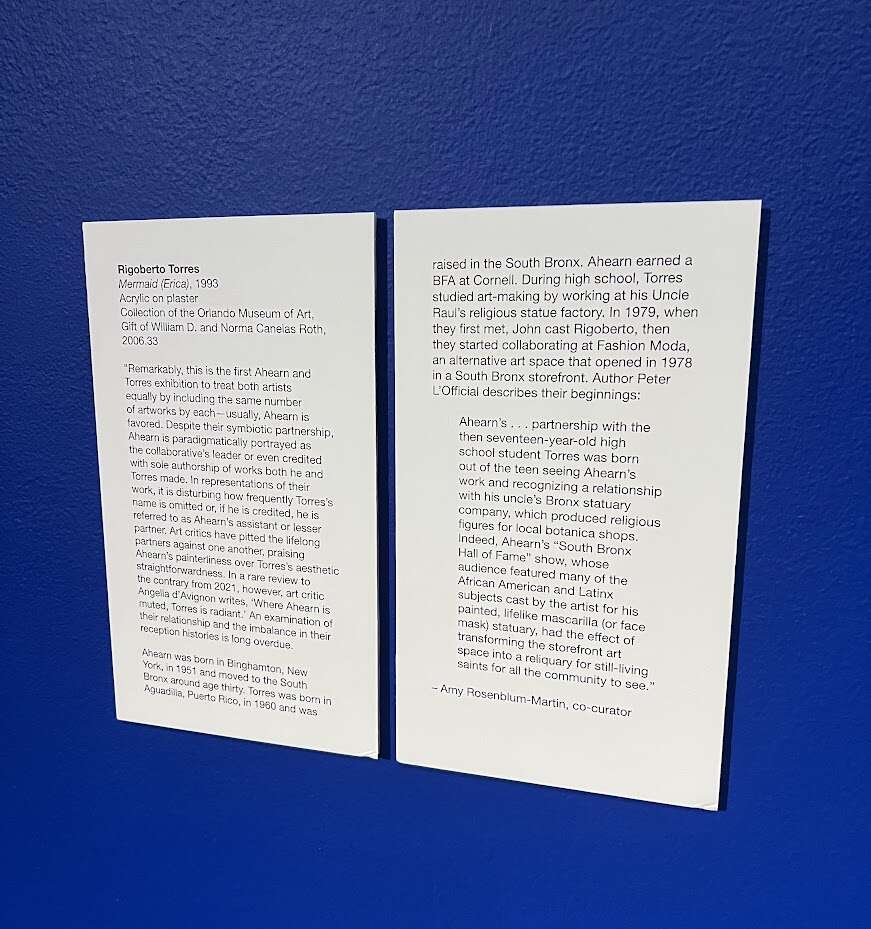 Rigoberto Torres
Mermaid (Erica), 1993
Acrylic on plaster
Collection of the Orlando Museum of Art,
Gift of William D. and Norma Canelas Roth,
2006.33
"Remarkably, this is the first Ahearn and
Torres exhibition to treat both artists
equally by including the same number
of artworks by each—usually, Ahearn is
favored. Despite their symbiotic partnership,
Ahearn is paradigmatically portrayed as
the collaborative's leader or even credited
with sole authorship of works both he and
Torres made. In representations of their
work, it is disturbing how frequently Torres's
name is omitted or, if he is credited, he is
referred to as Ahearn's assistant or lesser
partner. Art critics have pitted the lifelong
partners against one another, praising
Ahearn's painterliness over Torres's aesthetic
straightforwardness. In a rare review to
the contrary from 2021, however, art critic
Angella d'Avignon writes, 'Where Ahearn is
muted, Torres is radiant.' An examination of
their relationship and the imbalance in their
reception histories is long overdue.
Ahearn was born in Binghamton, New
York, in 1951 and moved to the South
Bronx around age thirty. Torres was born in
Aguadilla, Puerto Rico, in 1960 and was
raised in the South Bronx. Ahearn earned a
BFA at Cornell. During high school, Torres
studied art-making by working at his Uncle
Raul's religious statue factory. In 1979, when
they first met, John cast Rigoberto, then
they started collaborating at Fashion Moda,
an alternative art space that opened in 1978
in a South Bronx storefront. Author Peter
L'Official describes their beginnings:
Ahearn's . . . partnership with the
then seventeen-year-old high
school student Torres was born
out of the teen seeing Ahearn's
work and recognizing a relationship
with his uncle's Bronx statuary
company, which produced religious
figures for local botanica shops.
Indeed, Ahearn's "South Bronx
Hall of Fame" show, whose
audience featured many of the
African American and Latinx
subjects cast by the artist for his
painted, lifelike mascarilia (or face
mask) statuary, had the effect of
transforming the storefront art
space into a reliquary for still-living
saints for all the community to see."
– Amy Rosenblum-Martin, co-curator